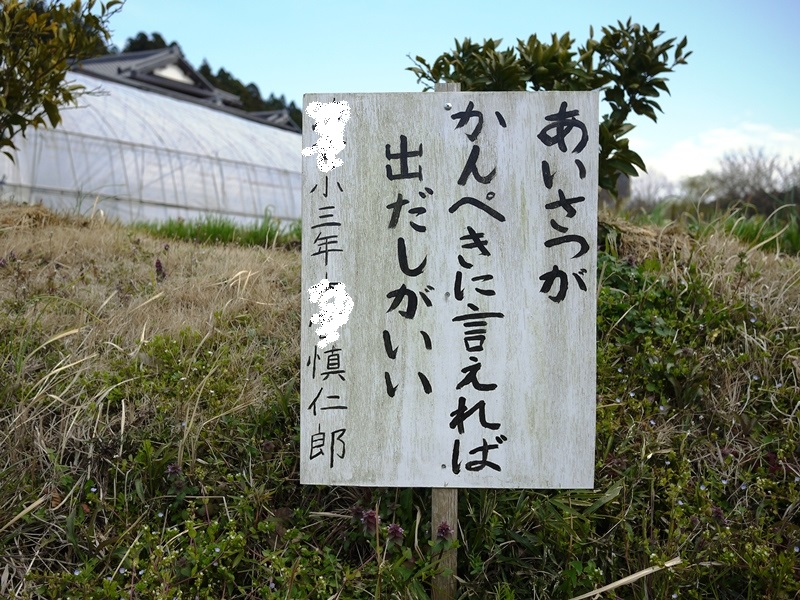 あいさつが
かんぺきに言えれば
出だしがいい
小三年 慎仁郎